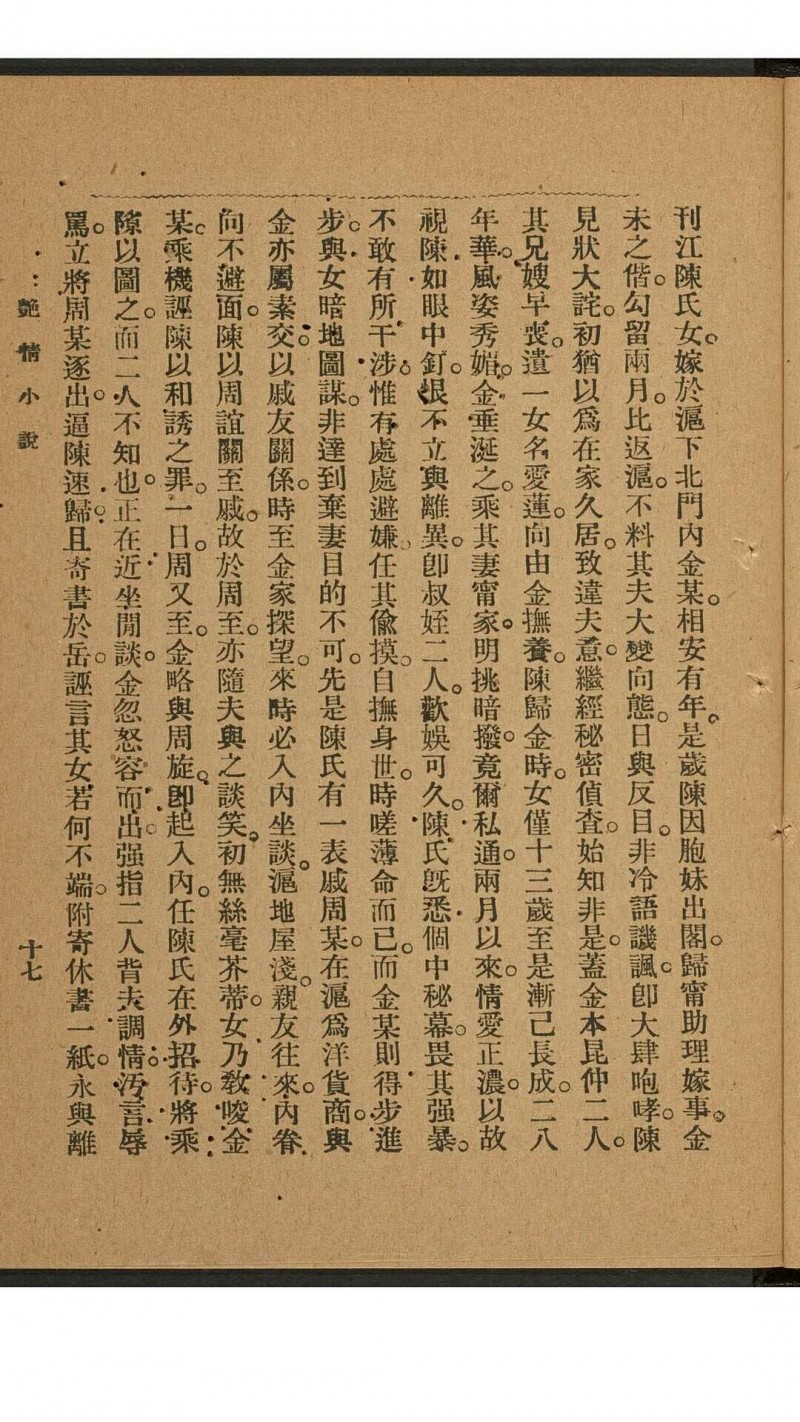 刊江陳氏女。嫁於滬下北門內金某。相安有年。是歲陳因胞妹出閣。歸甯助理嫁事。金
未之偕。勾留兩月。比返滬。不料其夫大變向態。日與反目。非冷語譏諷。卽大肆咆哮。陳
見狀大詫。初猶以爲在家久居。致違夫意。繼經秘密偵查。始知非是。蓋金本昆仲二人。
其兄嫂早喪。遺一女名愛蓮。向由金撫養。陳歸金時。女僅十三歲至是漸已長成。二八
年華。風姿秀媚。金垂涎之。乘其妻甯家。明挑暗撥。竟爾私通。兩月以來。情愛正濃。以故
視陳如眼中釘。恨不立與離異。卽叔姪二人。歡娛可久。陳氏旣悉個中秘幕。畏其强暴。
不敢有所干涉。惟有處處避嫌。任其偸摸。自撫身世。時嗟薄命而已。而金某則得步進
步。與女暗地圖謀。非達到棄妻目的不可。先是陳氏有一表戚周某。在滬爲洋貨商。與
金亦屬素交。以戚友關係。時至金家探望。來時必入內坐談。滬地屋淺。親友往來。內眷
向不避面。陳以周誼關至戚。故於周至。亦隨夫與之談笑。初無絲毫芥蒂。女乃敎唆金
某。乘機誣陳以和誘之罪。一日。周又至。金略與周旋。卽起入內。任陳氏在外招待。將乘
隙以圖之。而二人不知也。正在近坐閒談。金忽怒容而出。强指二人背夫調情。汚言辱
罵。立將周某逐出。逼陳速歸。且寄書於岳。誣言其女若何不端。附寄休書一紙。永與離
艷情小說
十七